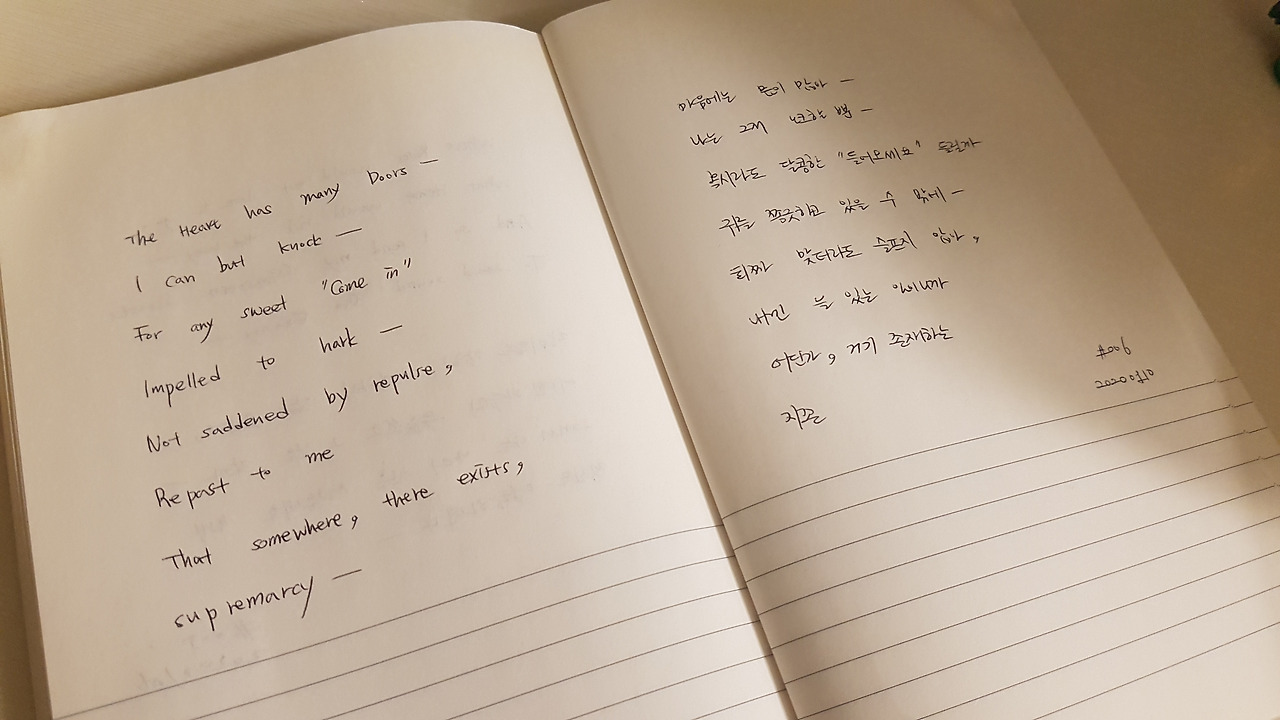 The Heart has many Doors —
I can but knock —
For any sweet "Come in"
Impelled to hark —
Not saddened by repulse,
Repast to me
That somewhere, there exists,
supremarcy —
마음에는 문이 많아 —
나는 그저 노크할 뿐 —
혹시라도 달콤한 "들어오세요" 들릴까
귀를 쫑긋하고 있을 수 밖에 —
퇴짜 맞더라도 슬프지 않아,
내겐 늘 있는 일이니까
어딘가, 거기 존재하는
지존
#006